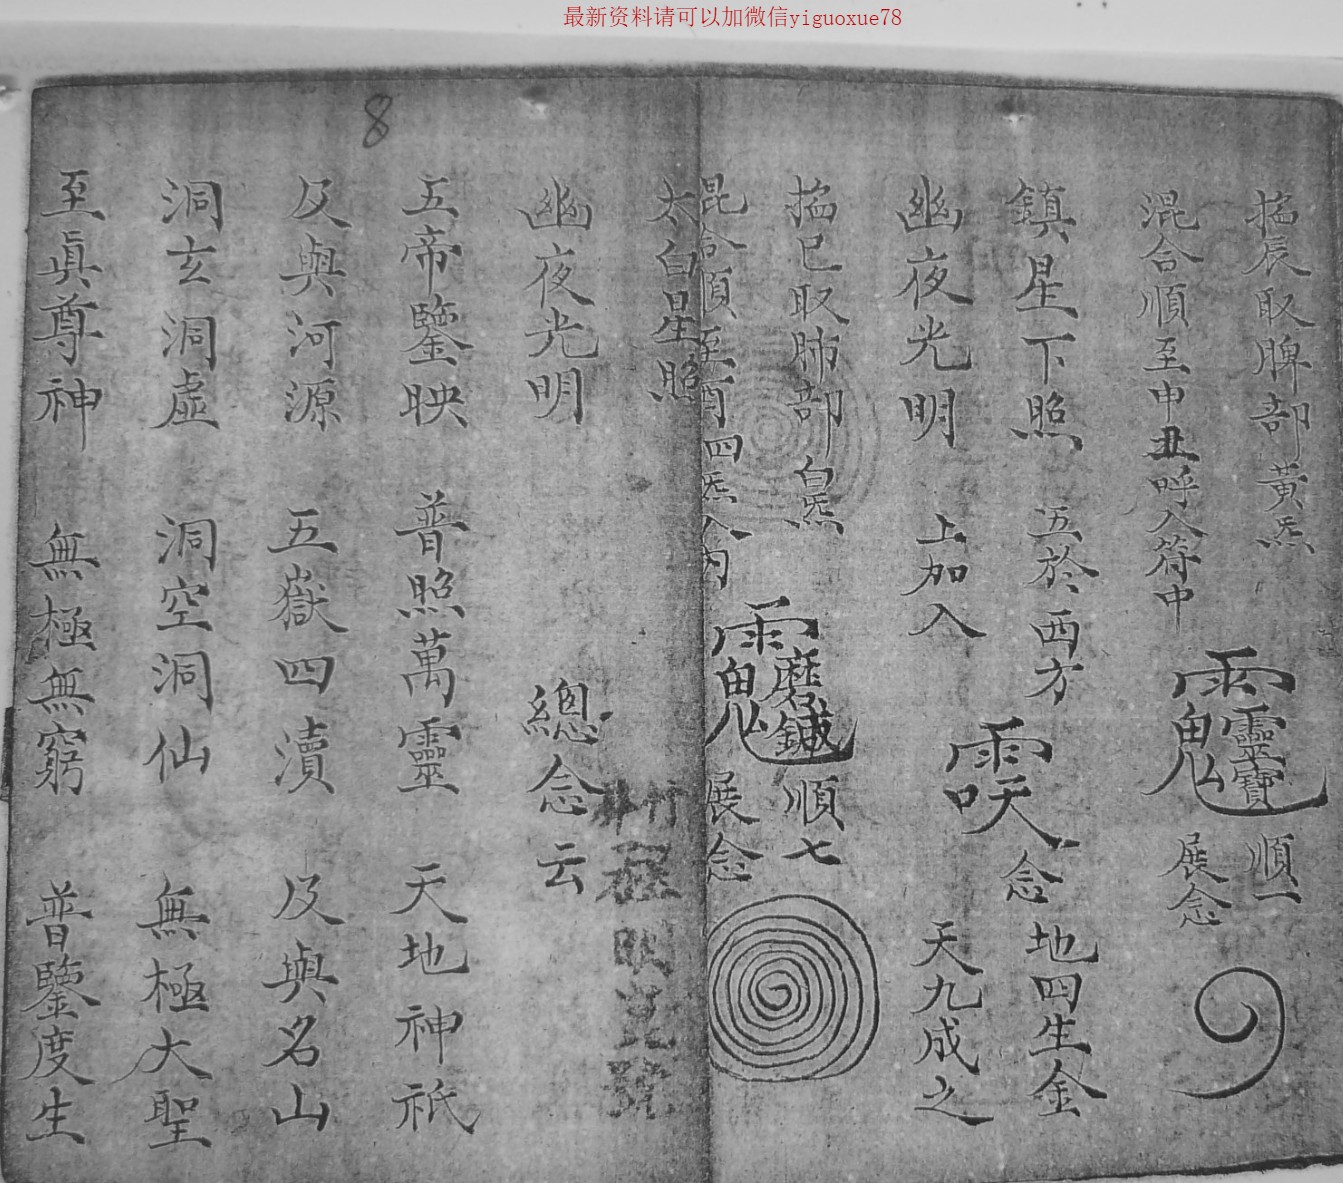 最新资料请可以加微信yiguoxue78
8
掐辰取脾部黃炁
混合順至申丑呼入符中
靈寶 順一
展念
鎮星下照 五於西方
幽夜光明 上加入
念 地四生金
天九成之
掐巳取肺部白炁
混合順至酉四炁入內
順七
展念
太白星照
幽夜光明 總念云
五帝鑒映 普照萬靈 天地神祇
及與河源 五嶽四瀆 及與名山
洞玄洞虛 洞空洞仙 無極大聖
至眞尊神 無極無窮 普鑒度生